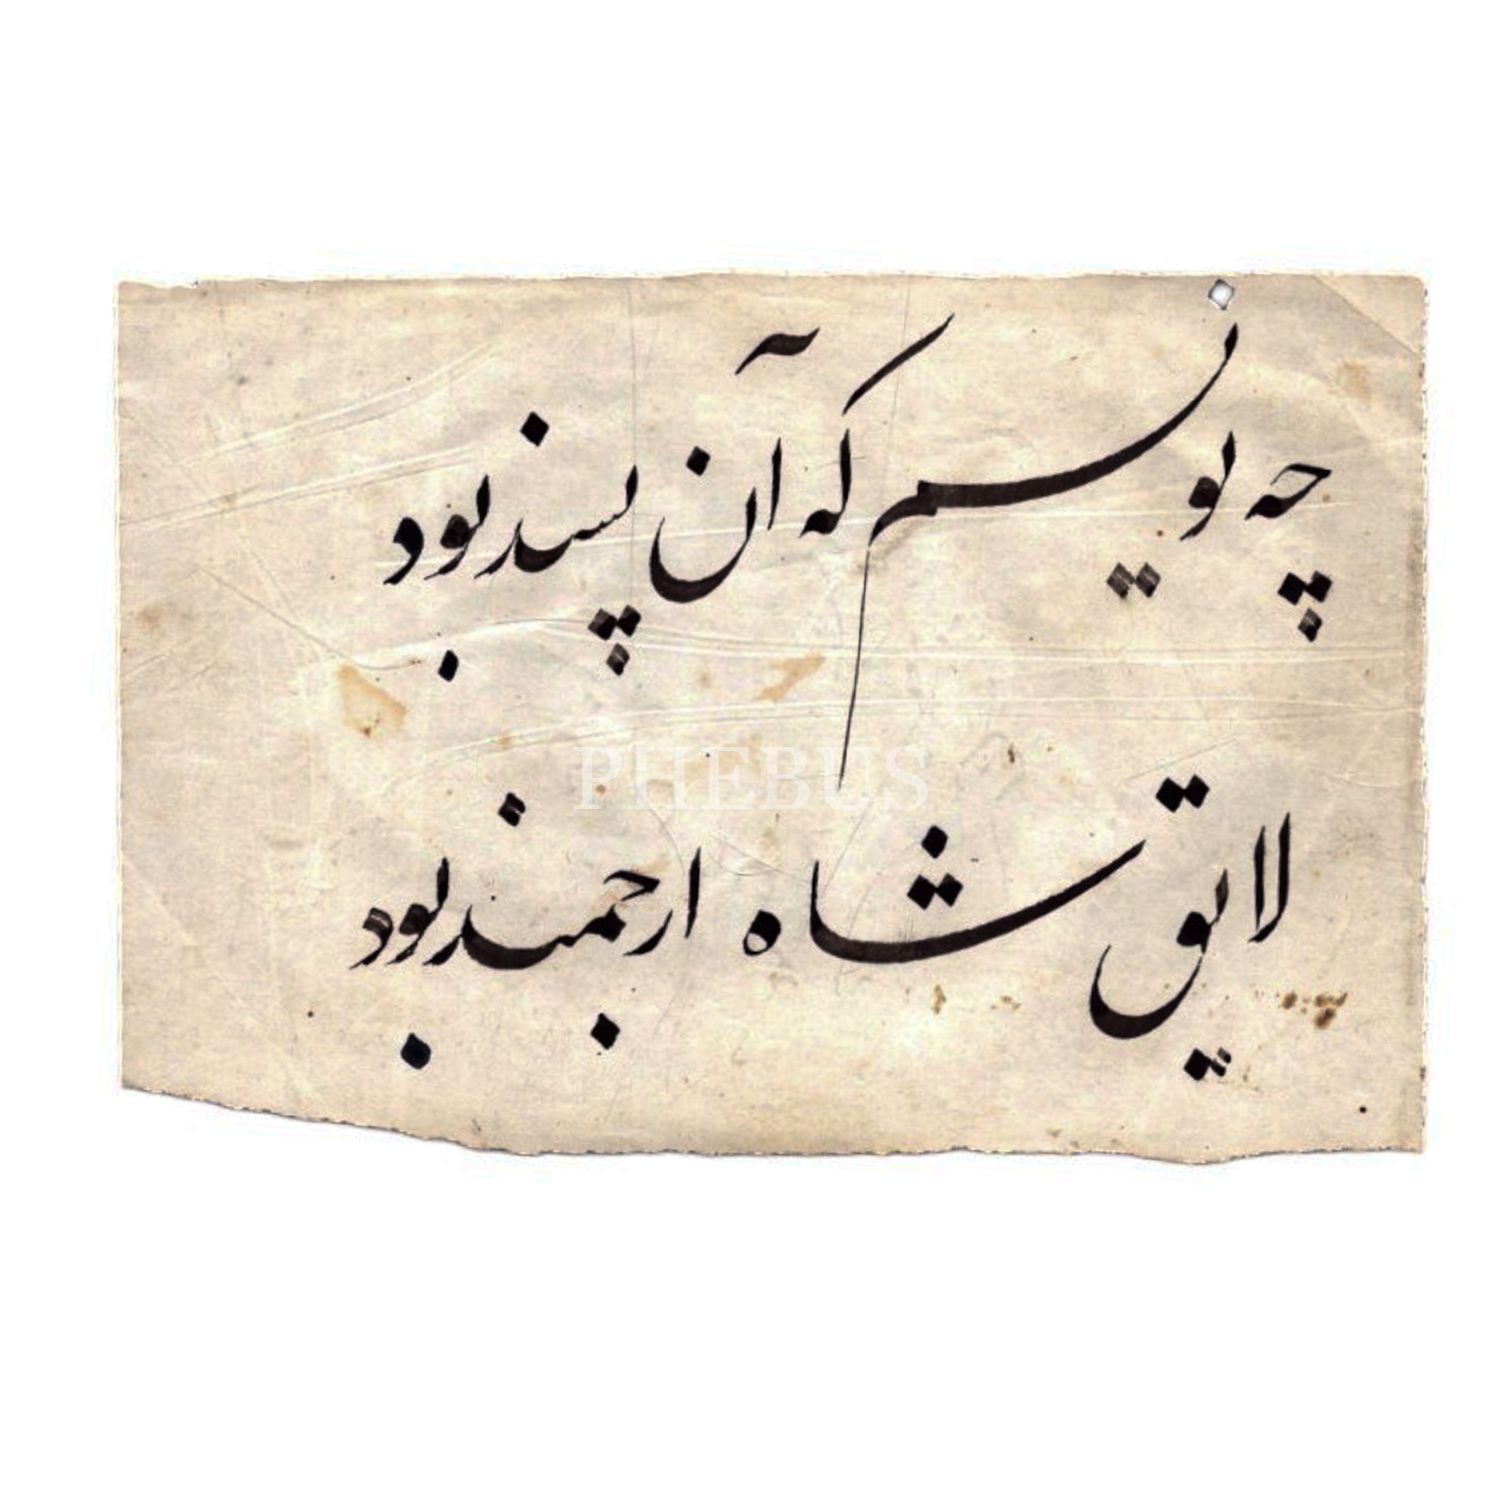 چه نویسم که آن پسند بود
PHEBUS
لایق شاه ارجمند بود